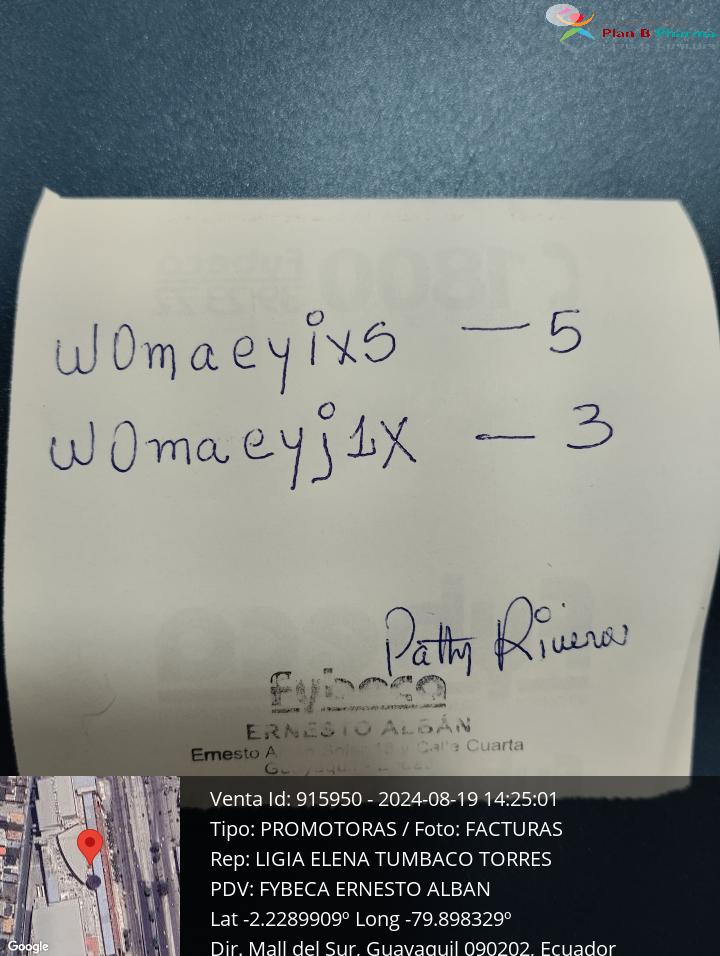 Plan B Pharma
1800 Fybeca
39 23 22
w0maeyixs — 5
w0maeyj1x — 3
Patty Rivera
Fybeca
ERNESTO ALBÁN
Ernesto A Solar 18 y Calle Cuarta
Venta Id: 915950 - 2024-08-19 14:25:01
Tipo: PROMOTORAS / Foto: FACTURAS
Rep: LIGIA ELENA TUMBACO TORRES
PDV: FYBECA ERNESTO ALBAN
Lat -2.2289909º Long -79.898329º
Dir. Mall del Sur, Guayaquil 090202, Ecuador
Google